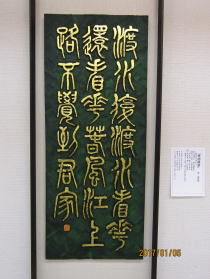 渡水復渡水看華
還看華春風江上
路不覺到君家
2017/01/05